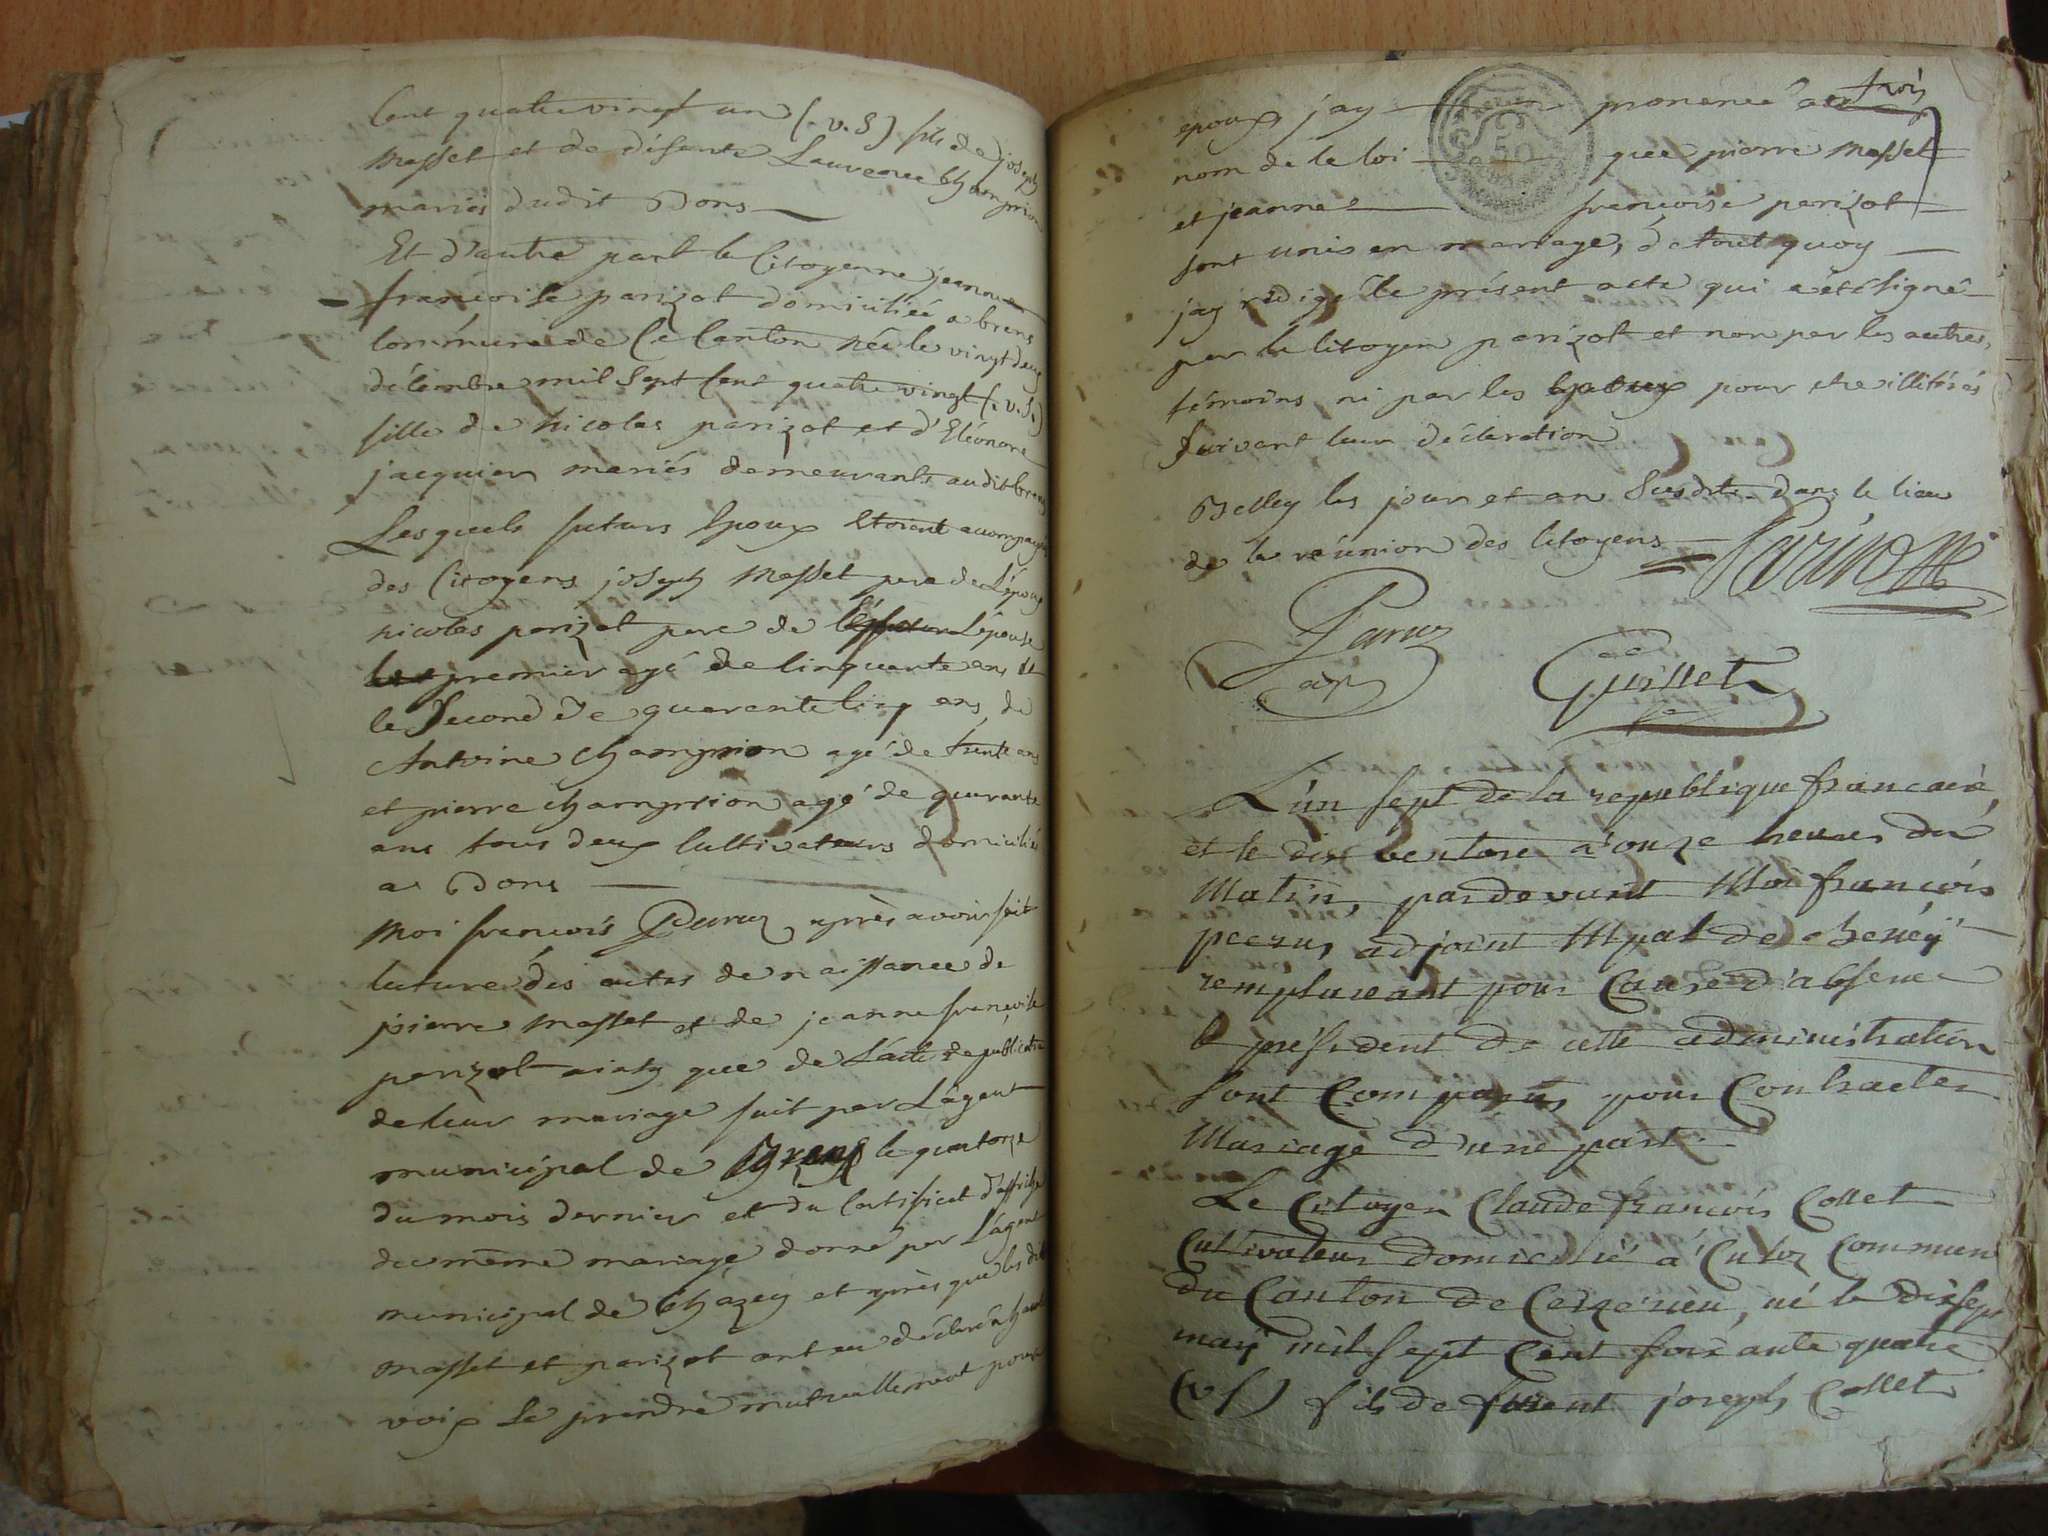 Cent quatre vingt un (. v. S) fils de joseph
Masset et de défunte Laurence Champion
mariés dudit Bons
Et d'autre part la Citoyenne jeanne
françoise parizot domiciliée a brens
Commune de Ce Canton née le vingt deux
décembre mil sept Cent quatre vingt (. v. S.)
fille de nicolas parizot et d'Eléonore
jacquier mariés demeurants audit brens
Lesquels futurs Epoux Etoient accompagnés
des Citoyens joseph Masset pere de L'époux
nicolas parizot pere de L'épouse
premier agé de Cinquante ans et
le Second de quarante Cinq ans, de
Antoine Champion agé de trente ans
et pierre Champion agé de quarante
ans tous deux Cultivateurs domiciliés
a Bons
Moi françois Peruz après avoir fait
lecture des actes de naissance de
pierre Masset et de jeanne françoise
parizot ainsy que de L'acte de publication
de leur mariage fait par L'agent
municipal de Brens le quatorze
du mois dernier et du Certificat d'affiche
du même mariage donné par L'agent
municipal de Chazey et après que les dits
Masset et parizot ont eu déclaré a haute
voix Se prendre mutuellement pour
trois
epoux, jay prononcé au
nom de la loi que pierre Masset
et jeanne françoise parizot
sont unis en mariage, de tout quoy
jay rédigé le présent acte qui a été signé
par le Citoyen parizot et non par les autres
témoins ni par les Epoux pour etre illitérés
Suivant leur déclaration
Belley les jour et an Susdits dans le lieu
de la réunion des Citoyens Parizot
Peruz
adj
Guillet
L'an sept de la republique francaise,
et le dix ventose a onze heures du
Matin, pardevant Moi françois
peezuz, adjoint Mpal de cheneÿ
remplaceant pour Cause d'absence
le président de cette administration
Sont Comparus, pour Contracter
Mariage d'une part
Le Citoyen Claude françois Collet
Cultivateur domicilié a Culoz Commune
du Canton de Ceyzérieu, né le dix sept
may mil sept Cent soixante quatre
(v S) fils de furent joseph Collet